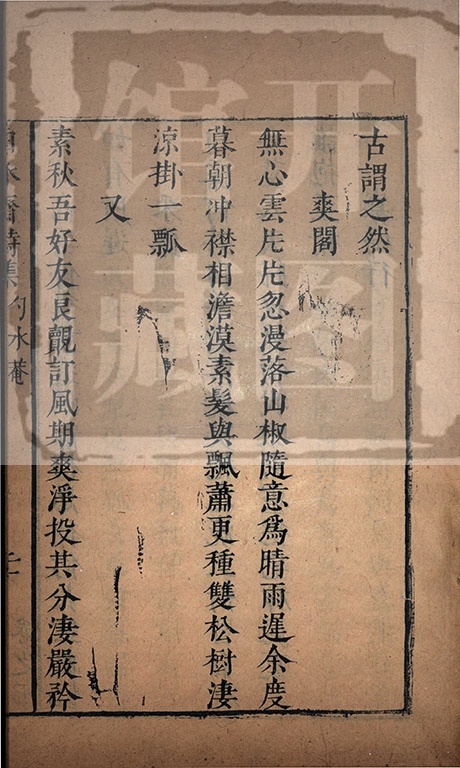 古謂之然
爽閣
無心雲片片忽漫落山椒隨意爲晴雨遲余度
暮朝冲襟相澹漠素髮與飄蕭更種雙松樹淒
涼掛一瓢
又
素秋吾好友良覿訂風期爽淨投其分淒嚴矜
齋詩集 勺水菴